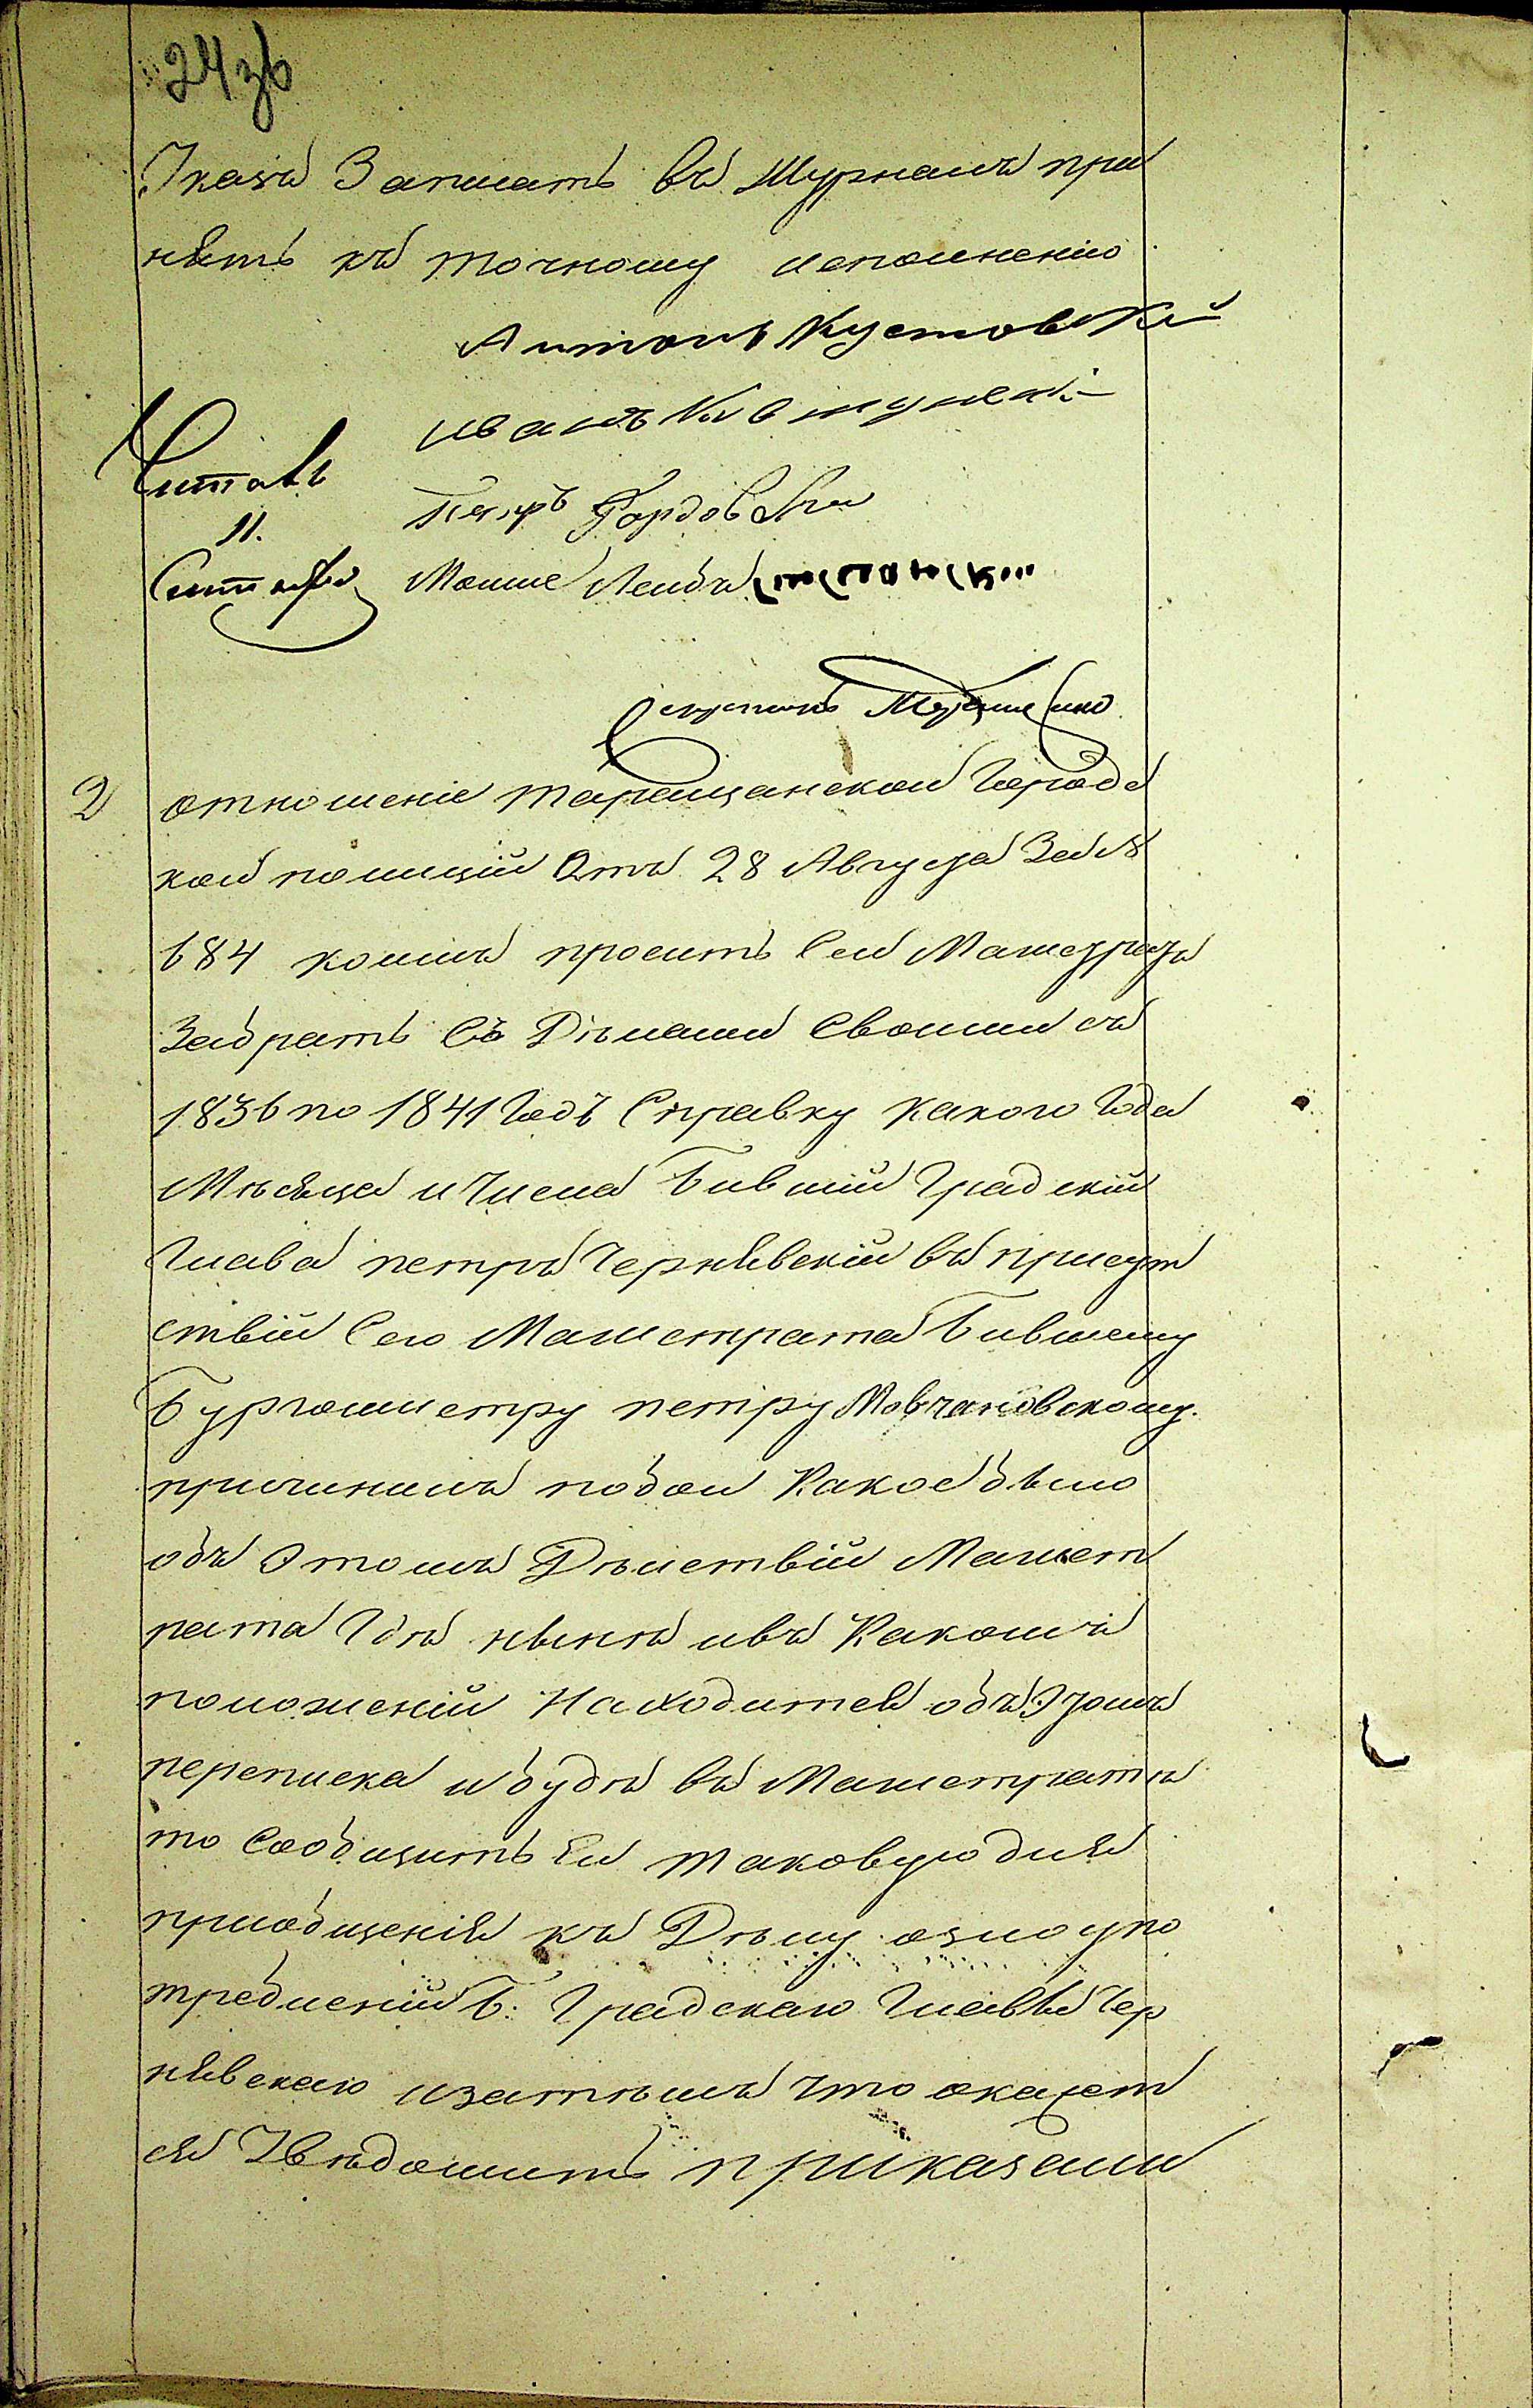 24 зв
Указъ Записать въ Журналъ при
нять къ точному исполненію
Антонъ Кустовскій
Иванъ
Читалъ
Петръ
П.
Мошие Лейба
Секретарь
2 отношеніе таращанской Город
кой полиціи Отъ 28 Августа За №
184 коимъ проситъ Сей Магистратъ
Забрать Съ Дѣлами Своими съ
1836 по 1841 Годъ Справку какого Года
Мѣсяца и Числа Бившій Градскій
Глава петръ Чернявскій въ присут
ствіи Сего Магистрата Бившему
Бургомистру петру Мовчановскому
причинилъ побои Какое было
объ Этомъ Дѣиствіи Магист
рата Гдѣ нынѣ ивъ Какомъ
положеніи Находится объ Этомъ
переписка и будѣ въ Магистратѣ
то Сообщить Ей таковую для
пріобщенія къ Дѣлу озлоупо
требленіи Б: Градскаго Главы Чер
нявскаго изатѣмъ что окажет
ся Увѣдомить приказали